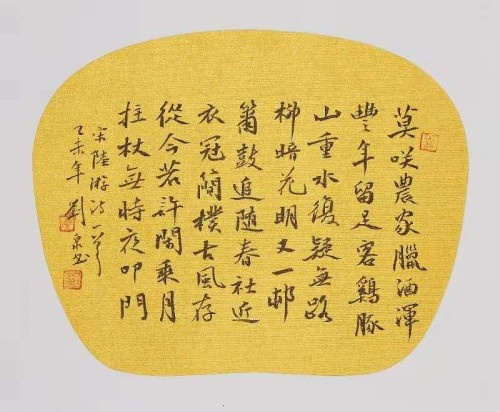 莫咲農家臘酒渾
豐年留足客鷄豚
山重水復疑無路
柳暗花明又一邨
簫鼓追隨春社近
衣冠簡樸古風存
從今若許閑乘月
拄杖無時夜叩門
宋陸游詩一首
乙未年劉泉書